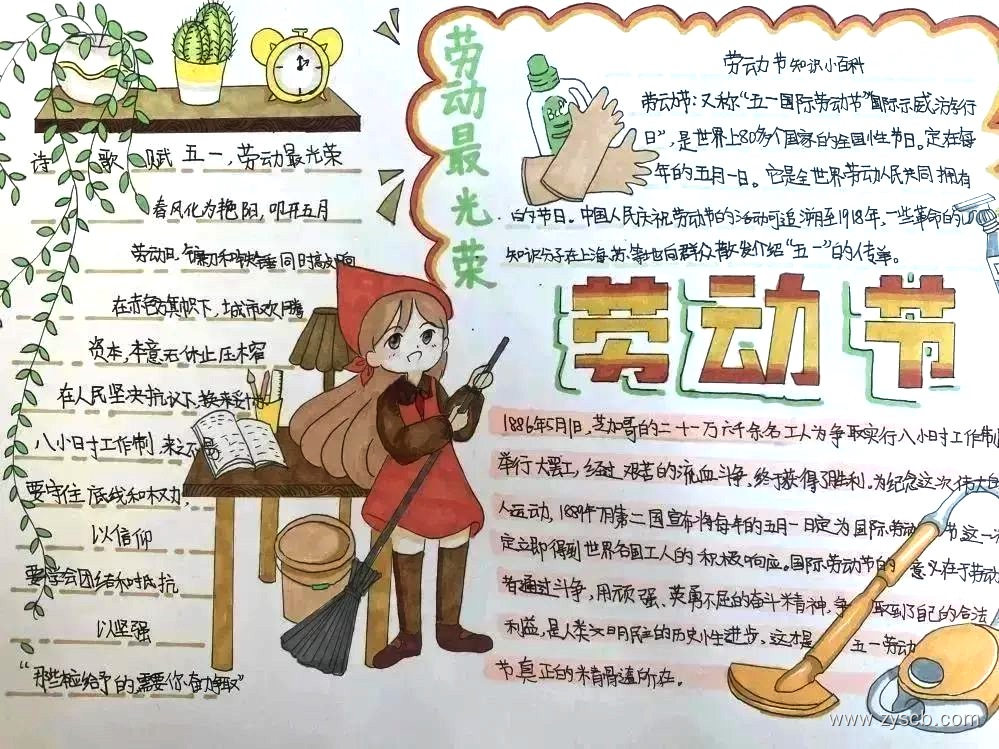 诗 歌 赋 五一，劳动最光荣
春风化为艳阳，叩开五月
劳动日 镰刀和铁锤同时高响
在赤色旗帜下，城市欢腾
资本，本意无休止压榨
在人民坚决抗议下
八小时工作制，来之不易
要守住底线和权力，
以信仰
要学会团结和抵抗
以坚强
“那些应给予的，需要你奋力争取”
劳动最光荣
劳动节知识小百科
劳动节：又称“五一国际劳动节”“国际示威游行
日”，是世界上80多个国家的全国性节日。定在每
年的五月一日。它是全世界劳动人民共同拥有
的节日。中国人民庆祝劳动节的活动可追溯至1918年，一些革命的
知识分子在上海、苏、等地向群众散发介绍“五一”的传单。
劳动节
1886年5月1日，芝加哥的二十一万六千余名工人为争取实行八小时工作制
举行大罢工，经过艰苦的流血斗争，终于获得了胜利。为纪念这次伟大的
人运动，1889年7月第二国宣布将每年的五月一日定为国际劳动 节这一
定立即得到世界各国工人的积极响应。国际劳动节的 意义在于劳动
者通过斗争，用顽强、英勇不屈的奋斗精神，争 取到了自己的合法
利益，是人类文明民主的历史性进步，这才是 五一劳动
节真正的精髓所在。
www.zyscb.com